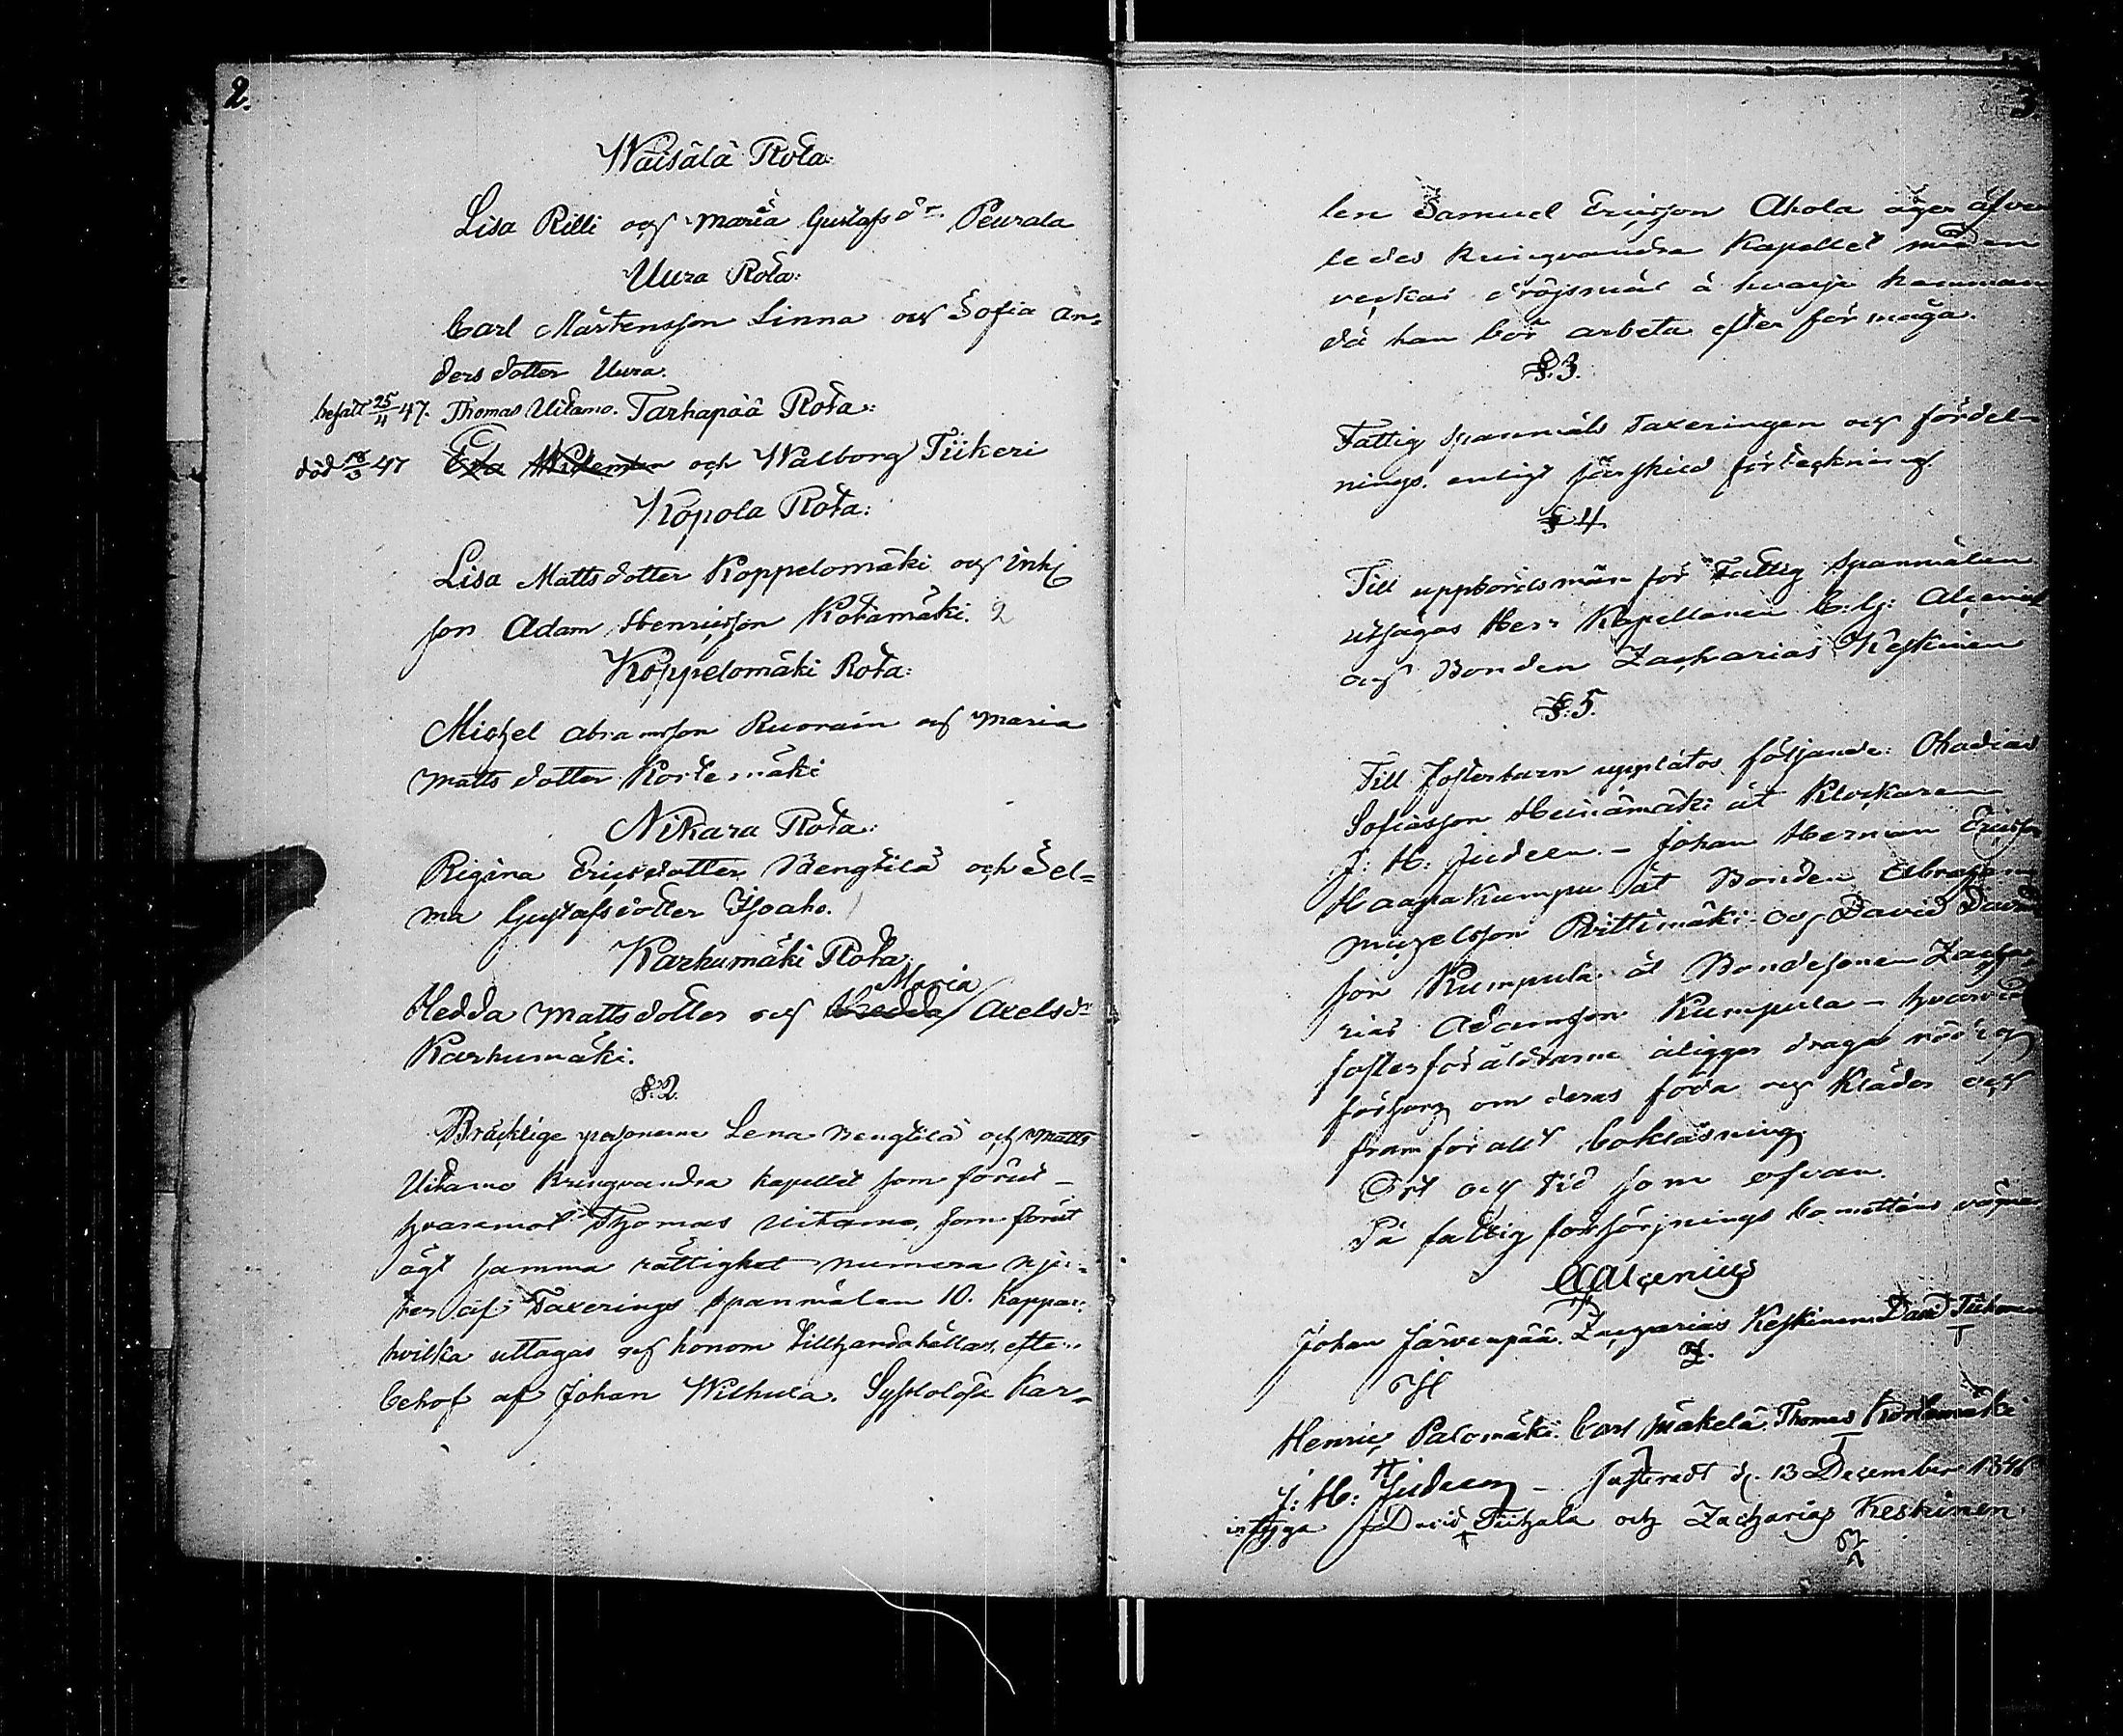 2.
Wäisälä Rota:
Lisa Rilli och Maria Gustafsdr Peurala
Uura Rota:
Carl Mårtensson Linna och Sofia An-
dersdotter Uura.
befalt 25/4 47. Thomas Uitamo. Tarhapää Rota:
död 18/3 47 Eva Wideman och Walborg Tiikeri
Kopola Rota:
Lisa Mattsdotter Koppelomäki och Inhy
son Adam Henricsson Kotamäki. 2
Koppelomäki Rota:
Michel Abramsson Ruorain och Maria
Mattsdotter Kortemäki
Nikara Rota:
Rigina Ericsdotter Bengtilä och Sel-
ma Gustafsdotter Isoaho.
Karhumäki Rota
Maria
Hedda Mattsdotter och Hedda Axelsdr
Karhumäki.
§:2.
Bräcklige personerne Lena Bengtilä och Matts
Uitamo kringvandra kapellet som förut –
hvaremot Thomas Uitamo, som förut
ägt samma rättighet numera nju-
ter af Taxerings Spanmålen 10. kappar
hvilka uttagas och honom tillhandahållas, efter
behof af Johan Wilhula. Sysslolöse Kar-
3.
len Samuel Ericsson Ahola äger äfven
ledes kringvandra Kapellet med en
veckas dröjsmål å hvarje hemman
då han bör arbeta efter förmåga.
§:3.
Fattig Spanmåls Taxeringen och fördel-
nings. enligt särskild förteckning.
§ 4.
Till uppbördsmän för Fattig Spanmålen
utsågos Herr Kapellanen C. G: Alcenius
och Bonden Zacharias Keskinen
§:5.
Till Fosterbarn uppläto följande: Obadias
Sofiasson Heinämäki åt Klockaren
J: H: Judeen. – Johan Herman Ericsson
Haapakumpu åt Bonden Abraham
Michelsson Riittimäki och David Davids
son Kumpula åt Bondesonen Zacha-
rias Adamsson Kumpula – hvarvid
fosterföräldrarne åligger draga nödig
försorg om deras föda och kläder och
framför allt bokläsning.
Ort och tid som ofvan.
På fattig försörjnings comitténs vägnar
Alcenius
Johan Järvenpää. Zacharias Keskinen. David Tiihonen
Henric Palomäki. Carl Mäkelä. Thomas Kortemäki
J: H: Judeen – Justeradt d. 13 December 1846
intyga David Tiihala och Zacharias Keskinen.